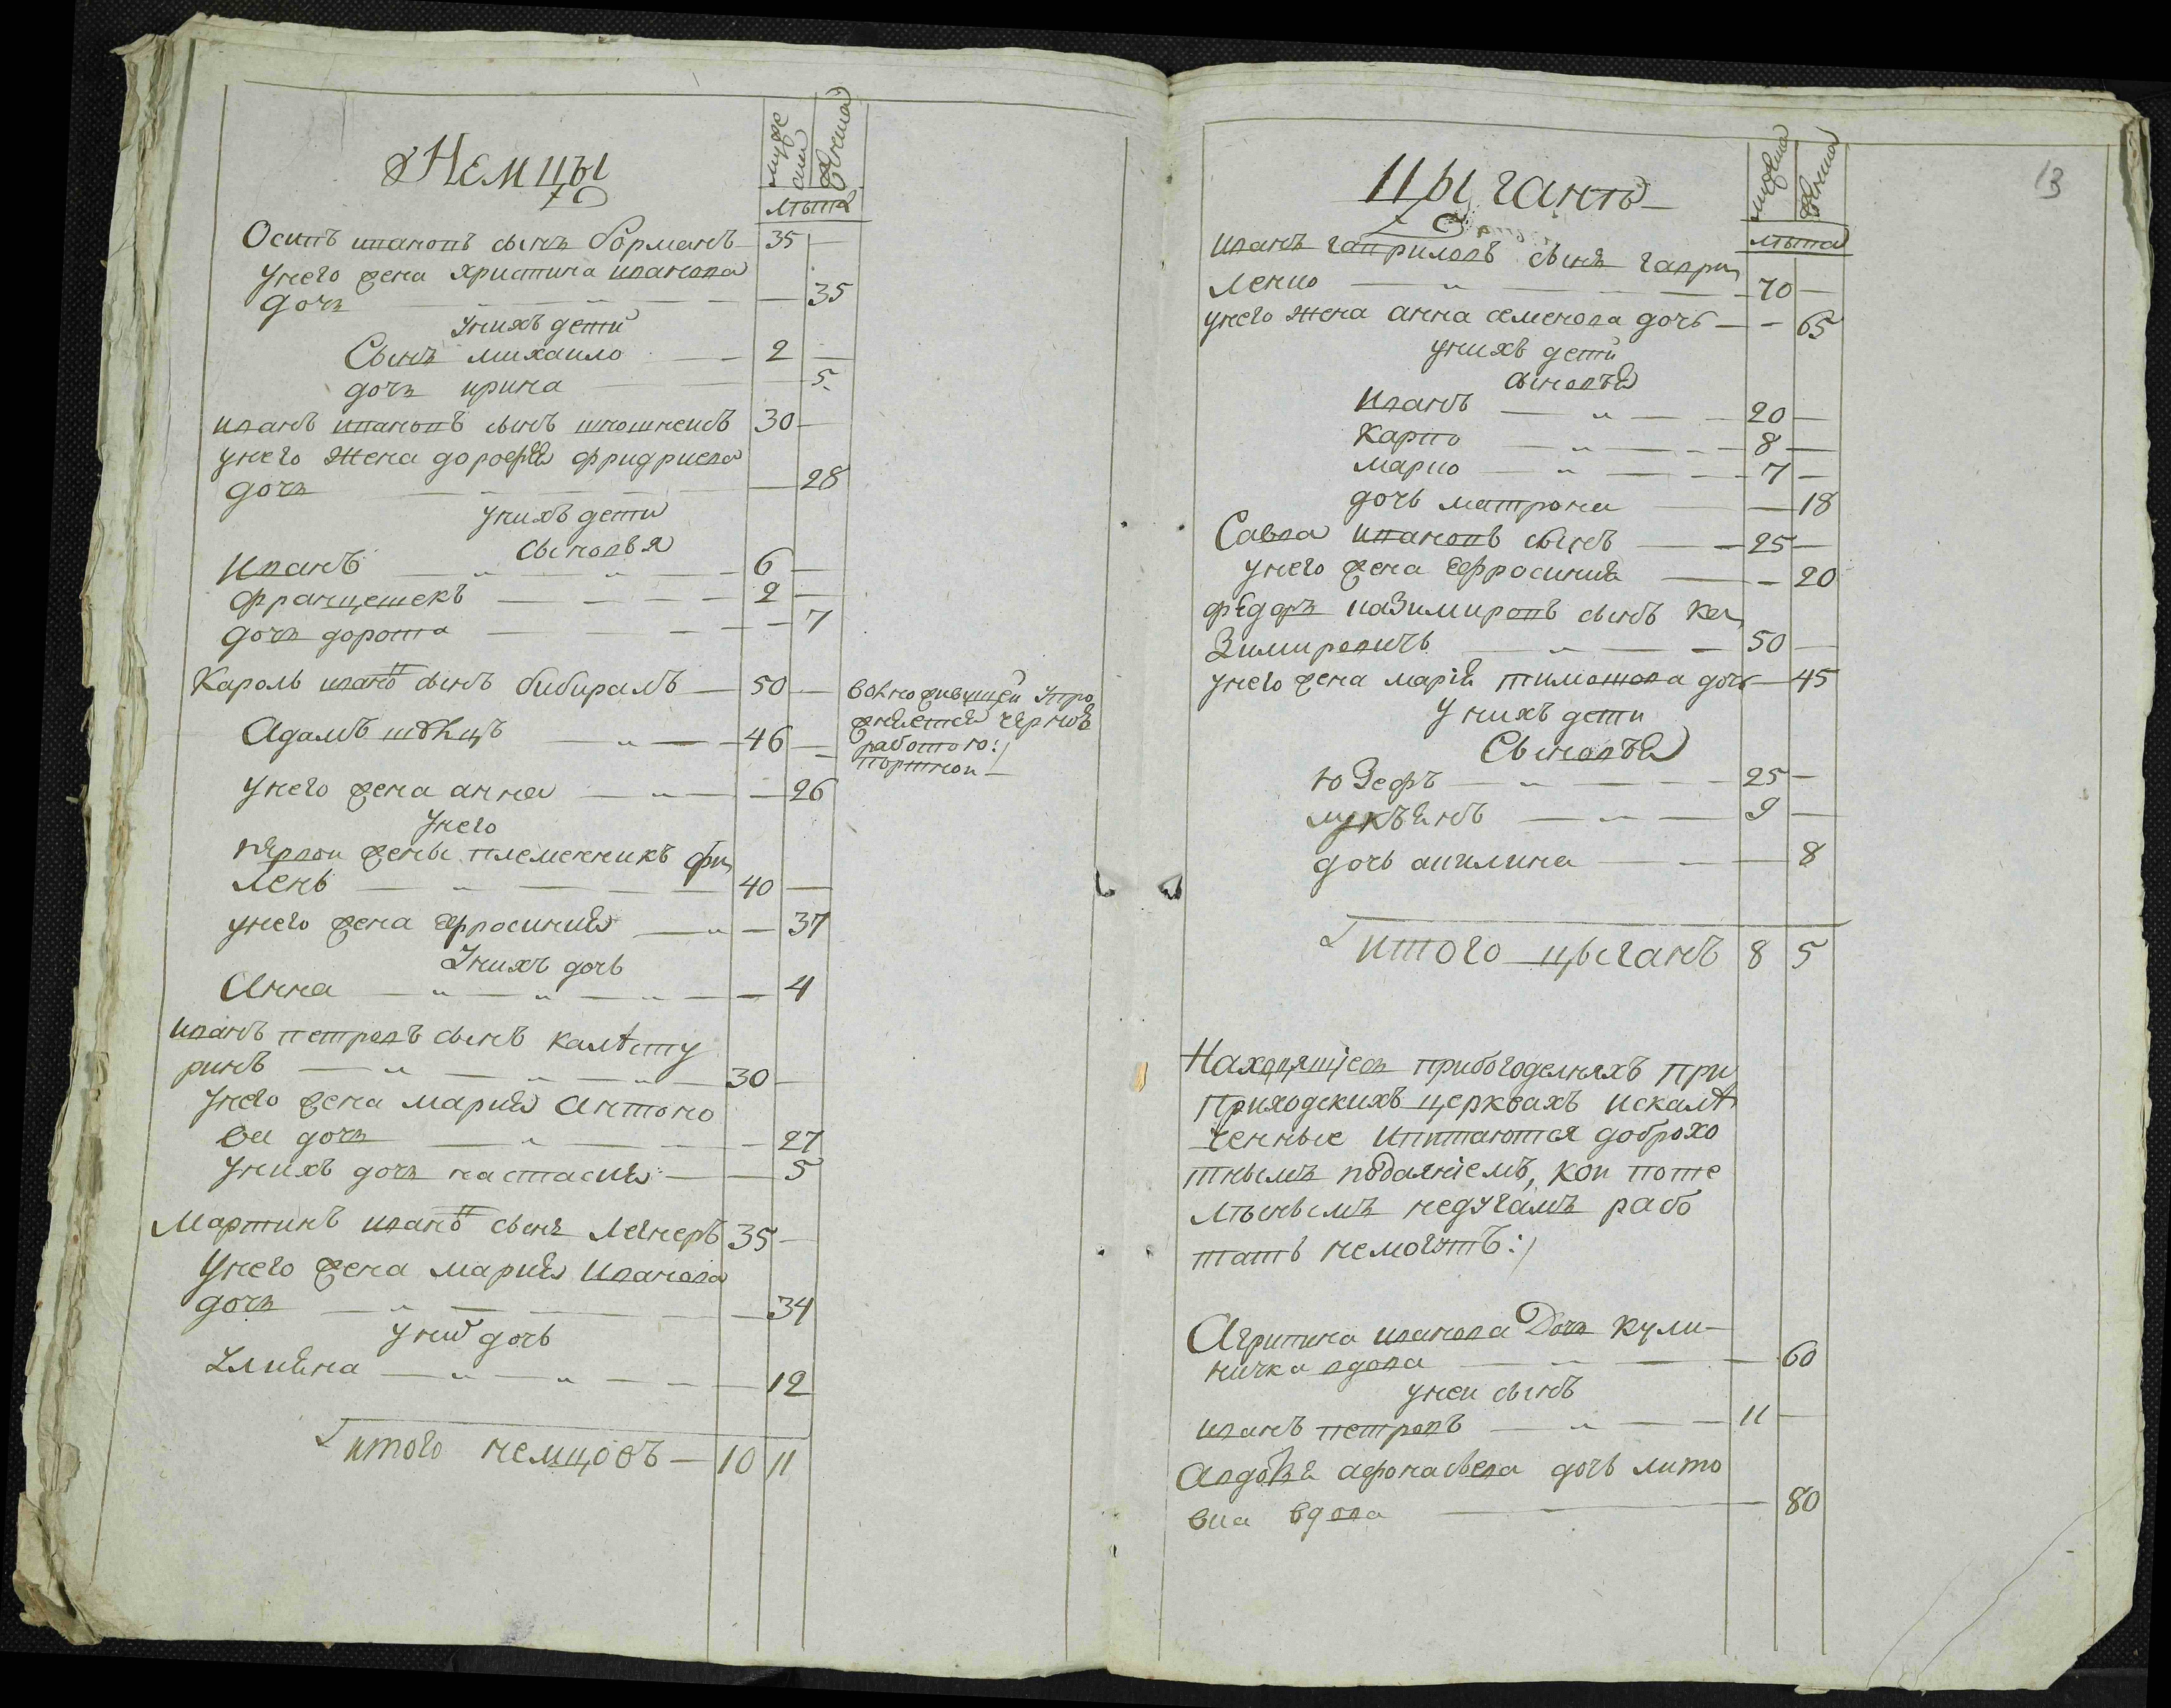 Немцы
мужеска
женска
лѣта
Осипъ ивановъ сынъ борманъ 35 —
унего жена христина иванова
дочь — 35
унихъ дети
Сынъ михаило 2 —
дочь ирина — 5
иванъ ивановъ сынъ 30 —
унего жена дорофея фридриева
дочь — 28
унихъ дети
сыновья
иванъ 6 —
францешекъ 2 —
дочь дорота — 7
Кароль ивановъ сынъ бибиралъ — 50 —
Адамъ швецъ — 46 —
работою:/
портной —
унего жена анна — 26
унего
первои жены племенникъ фи
ленъ — 40 —
унего жена ефросиния — 37
унихъ дочь
Анна — 4
иванъ петровъ сынъ калѣсту
ринъ — 30 —
унего жена мария антоно
ва дочь — 27
унихъ дочь настасия — 5
Мартинъ ивановъ сынъ лейнеръ 35 —
унего жена мария иванова
дочь — 34
уних дочь
улияна — 12
итого немцовъ — 10 11
13
Цыганъ
мужеска
женска
лѣта
иванъ гавриловъ сынъ гаври
ленко — 70 —
унего жена анна семенова дочь — 65
унихъ дети
сыновья
иванъ — 20 —
карпо — 8 —
марко — 7 —
дочь матрона — 18
Савва ивановъ сынъ — 25 —
унего жена ефросиния — 20
федоръ казимировъ сынъ ка
зимировичъ — 50 —
унего жена мария тимошова дочь — 45
унихъ дети
Сыновья
юзефъ — 25 —
лукъянъ — 9 —
дочь акилина — 8
итого цыганъ 8 5
Находящіеся прибогоделняхъ при
приходскихъ церквахъ искалѣ
ченные ипитаются доброхо
тнымъ подаяніемъ, кои поте
лѣснымъ недугамъ рабо
тать немогутъ:/
Агрипина иванова Дочь кули-
ничка вдова — 60
унеи сынъ
иванъ петровъ — 11 —
Авдотия афонасьева дочь лито
вка вдова — 80